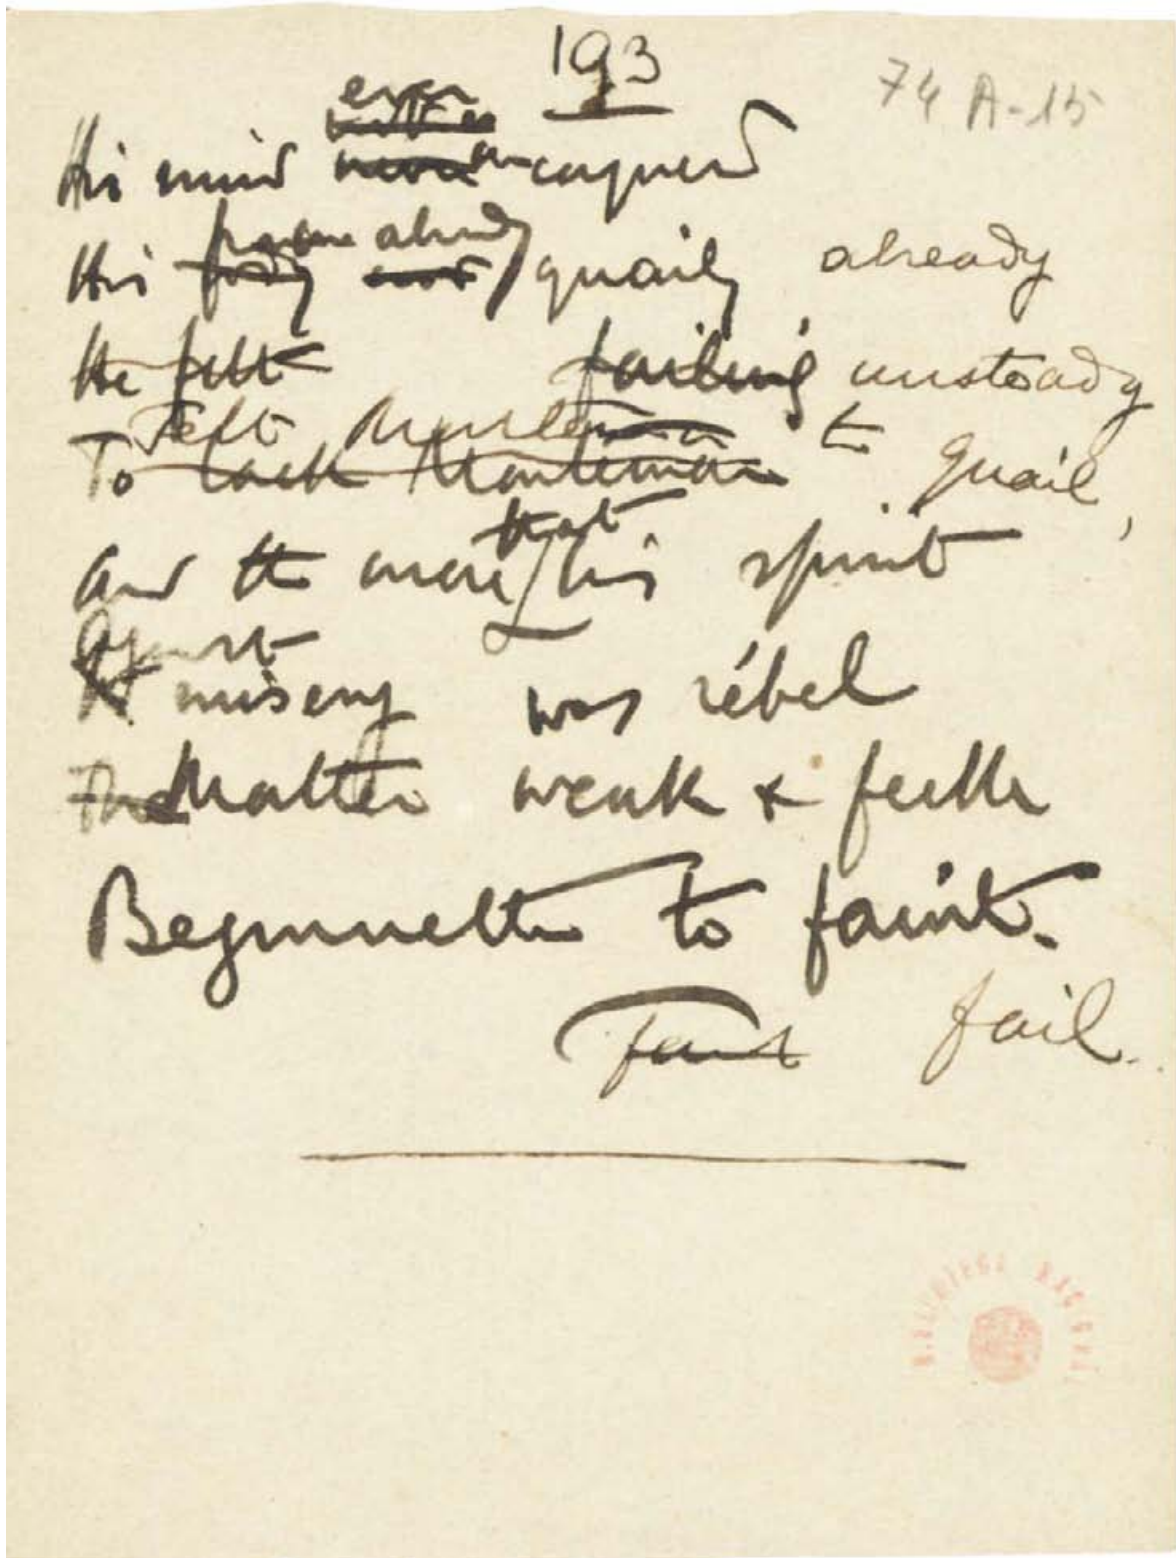 193
74 A-15
even
His mind unconquered
frame already
His body quails already
He felt failing unsteady
Felt
To lack to quail,
that
and the more his spirit
Against
misery was rebel
The Matter weak & feeble
Beginneth to faint.
Faint fail.
BIBLIOTECA NACIONAL